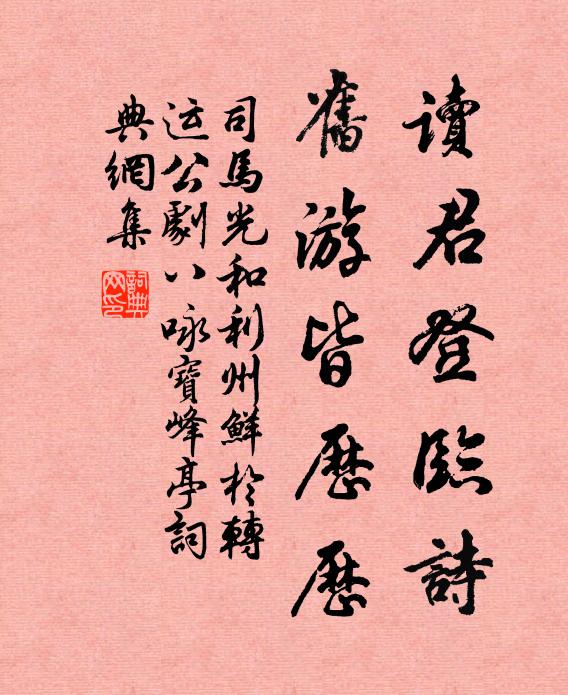 讀君登臨詩
舊游皆歷歷
司馬光和利州鮮於轉
运公劇八咏寶峰亭詞
典網集
詞典网印